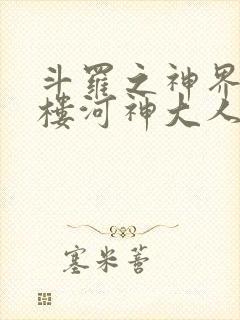 斗羅之神界
樓河神大人
塞米蒼